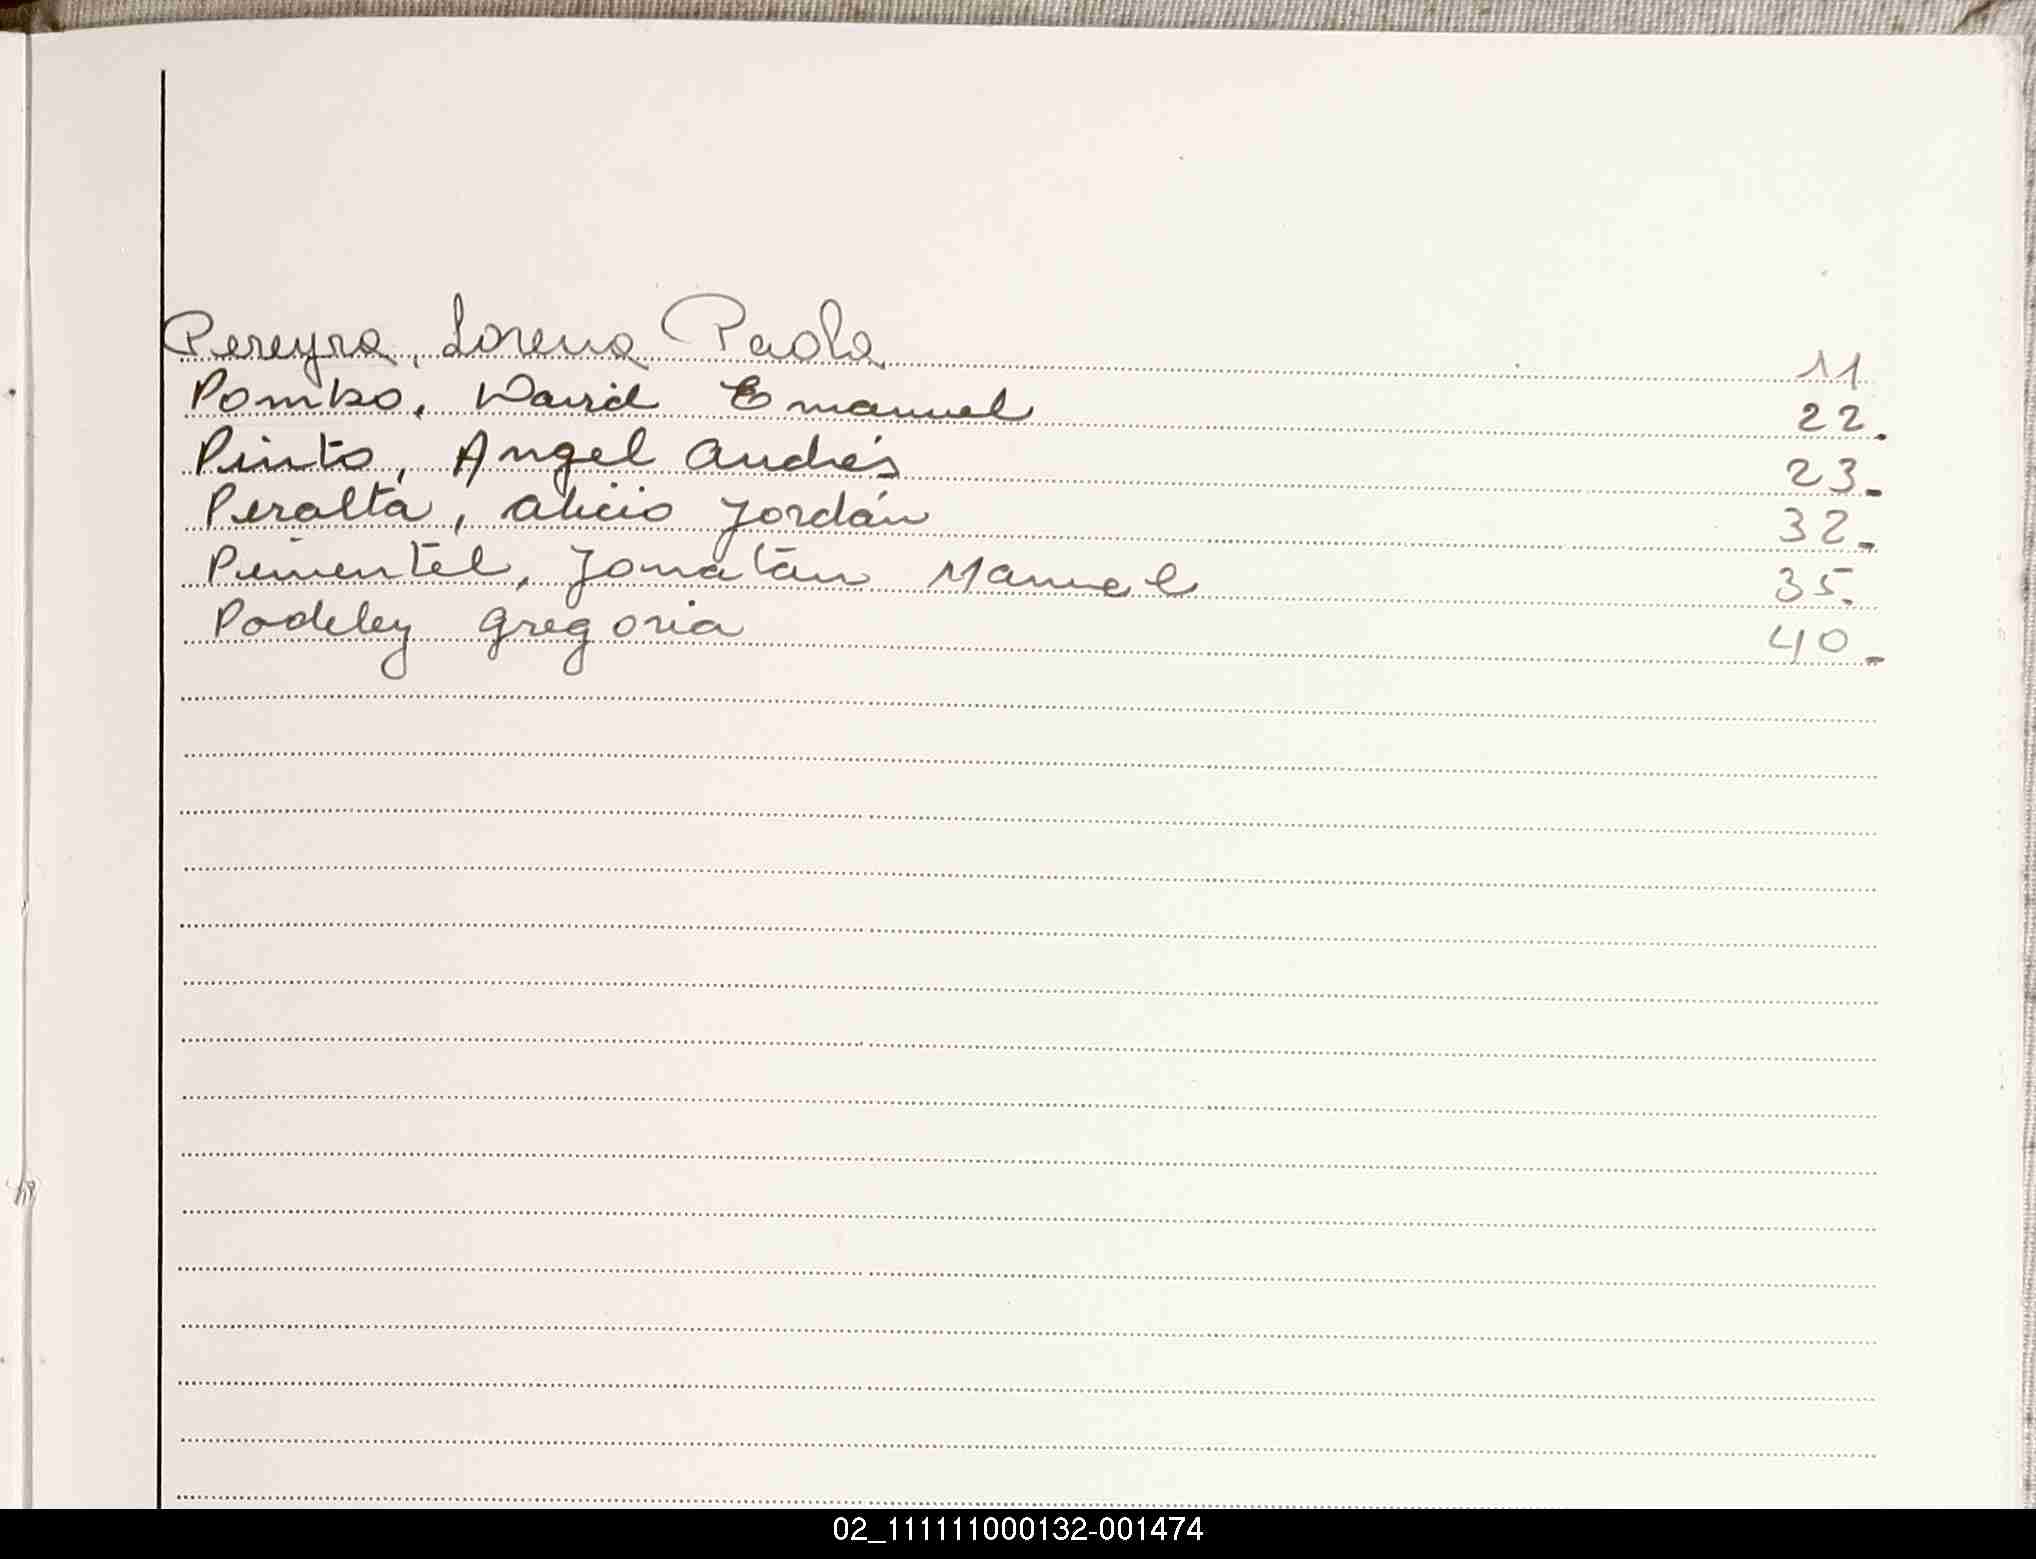 Pereyra, Lorena Paola 11
Pombo, David Emanuel 22.
Pinto, Angel Andrés 23.
Peralta, Alicio Jordán 32.
Pimentel, Jonatan Manuel 35.
Podeley Gregoria 40.
02_111111000132-001474